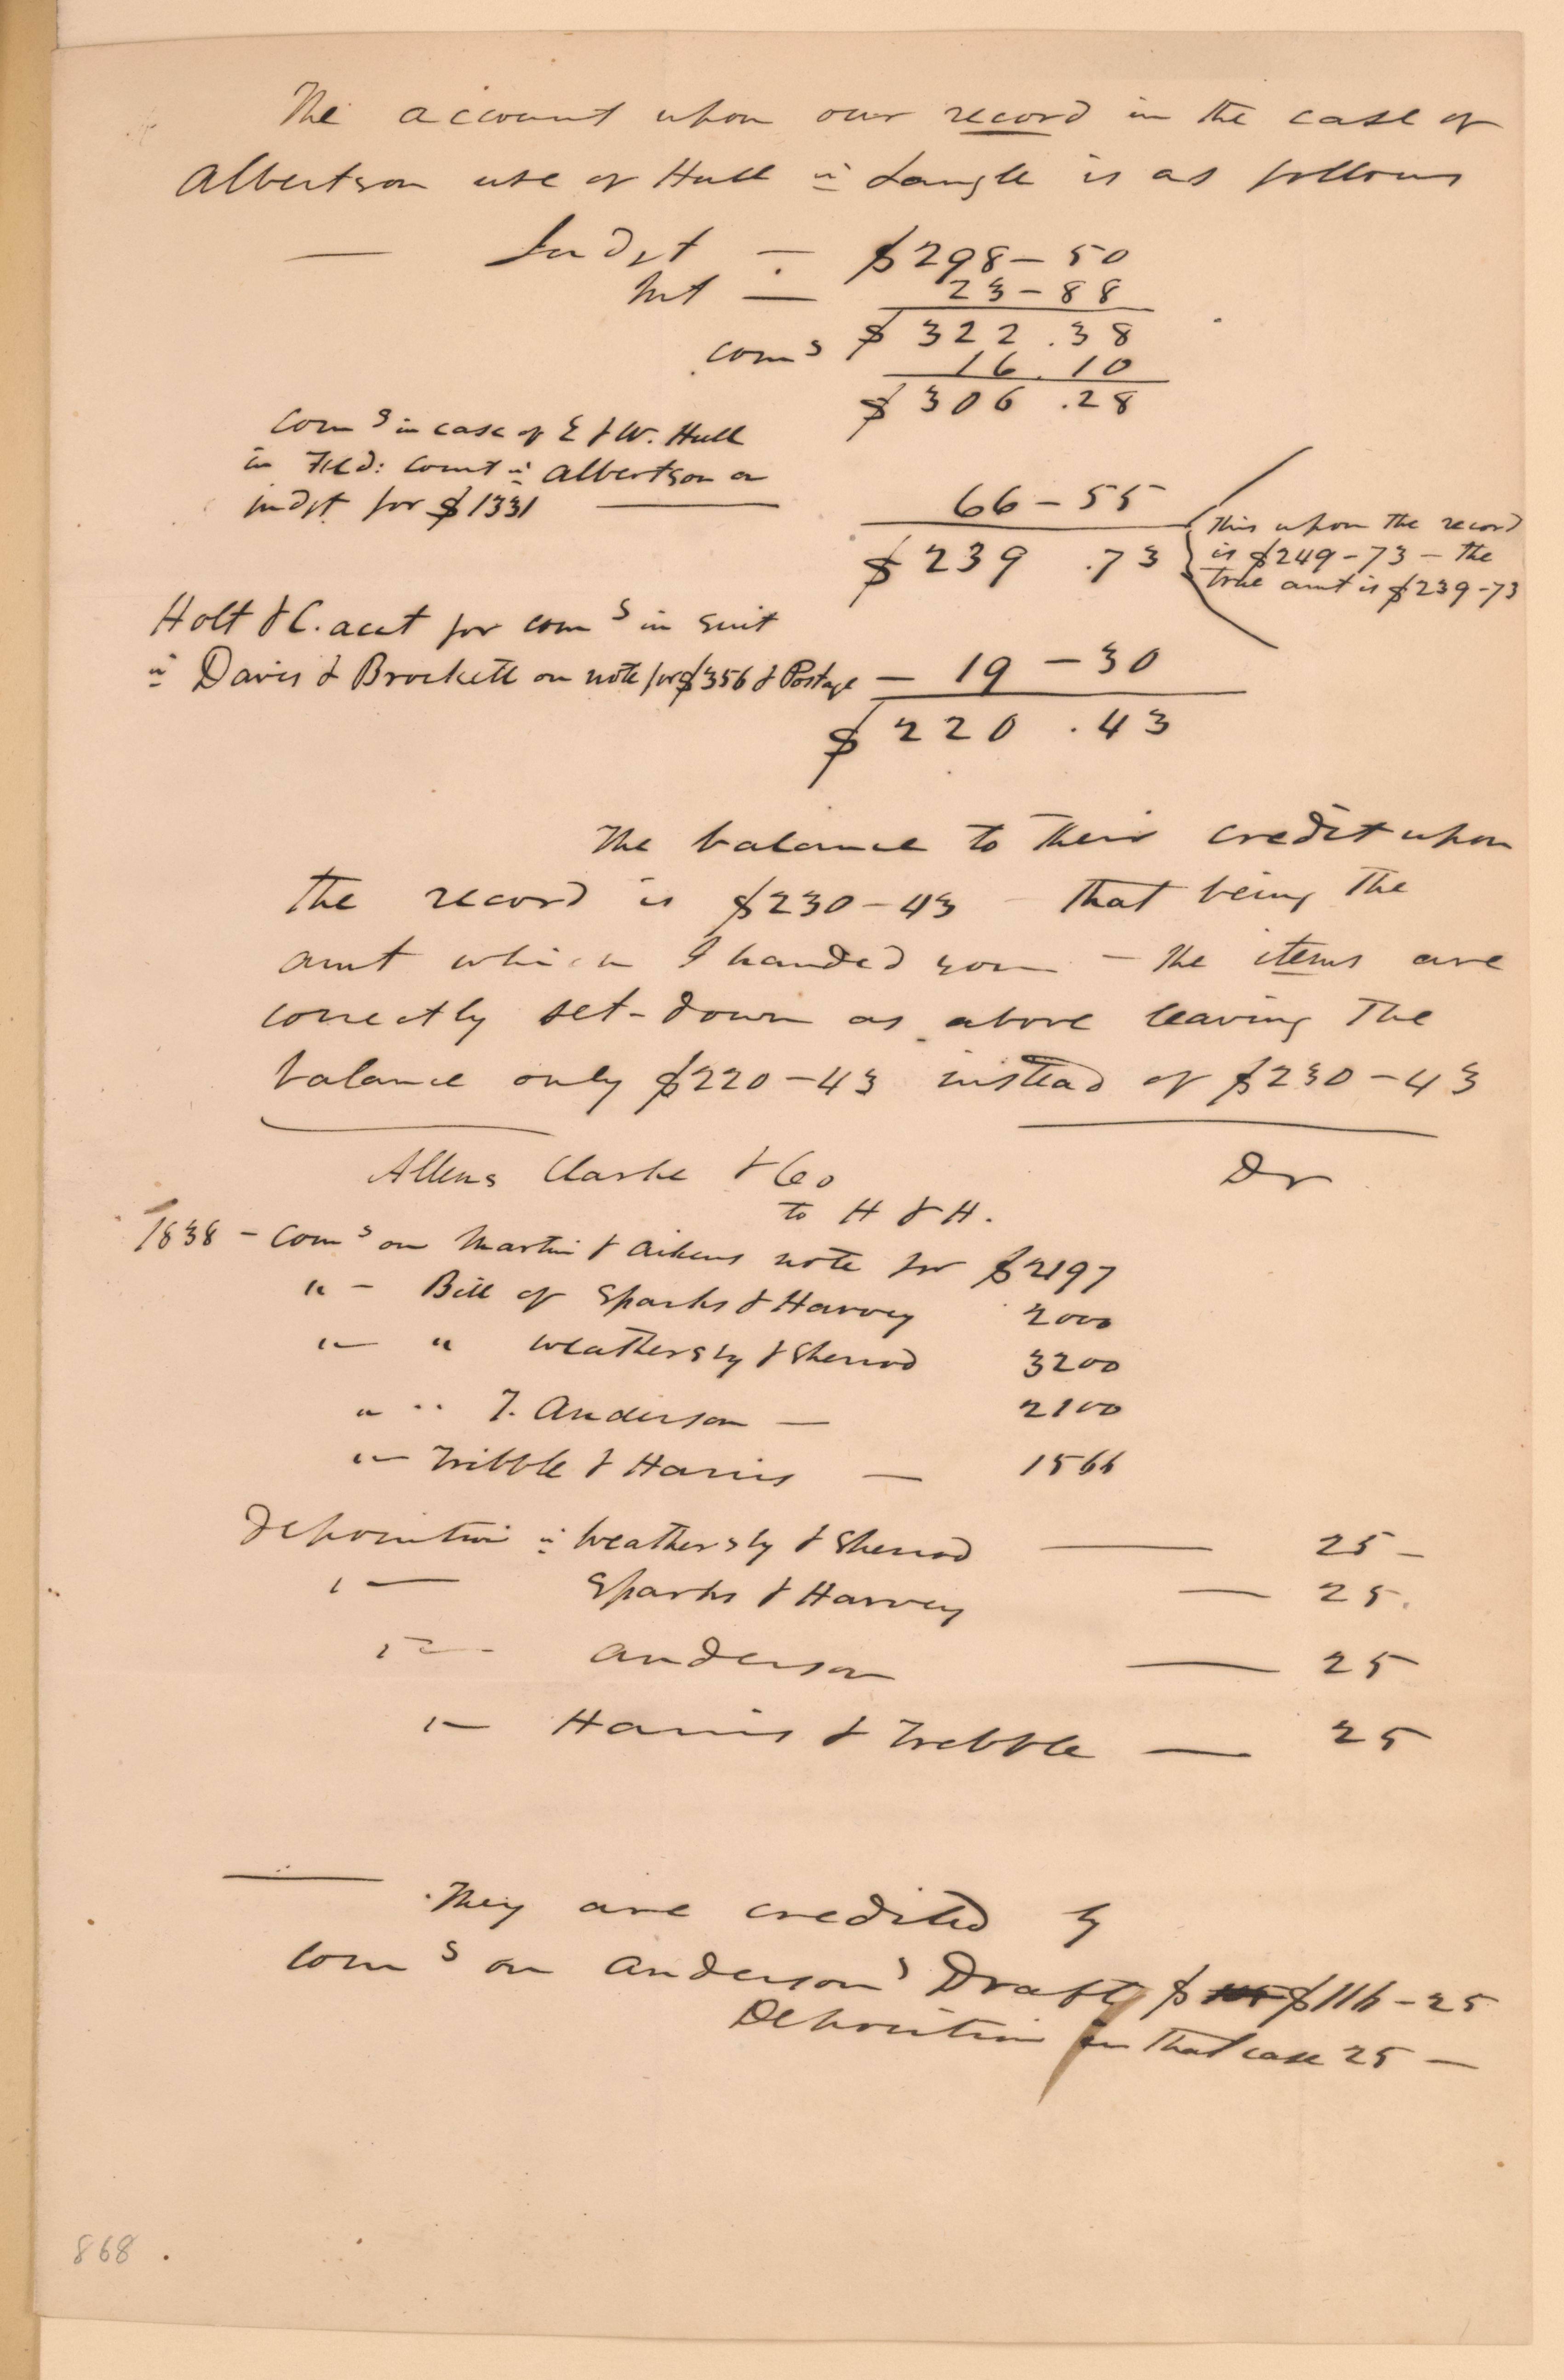 The account upon our record in the case of
Albertson use of Hull vs Langle is as follows
— Judgt — $298-50
Int — 23-88
$ 322.38
coms 16.10
$ 306.28
Coms in case of E & W. Hull
in Fed: Court vs Albertson on
judgt for $1331 — 66-55
$ 239.73
This upon the record
is $249-73 - the
true amt is $239-73
Holt & C. acct for coms in suit
vs Davis & Brockett on note for $356 & Postage — 19-30
$ 220.43
The balance to their credit upon
the record is $230-43 - that being the
amt which I handed you - the items are
correctly set-down as above leaving the
balance only $220-43 instead of $230-43
Allens Clarke & Co Dr
to H & H.
1838 - Coms on Martin & Aikens note for $2197
" - Bill of Sparks & Harvey 2000
" - " Weathersby & Sherrod 3200
" " T. Anderson — 2100
" - Tribble & Harris — 1566
Deposition vs Weathersby & Sherrod — 25 -
" — Sparks & Harvey — 25.
" - Anderson — 25
" - Harris & Trebble — 25
They are credited by
coms on Anderson's Draft $ $116-25
Deposition in that case 25 -
868